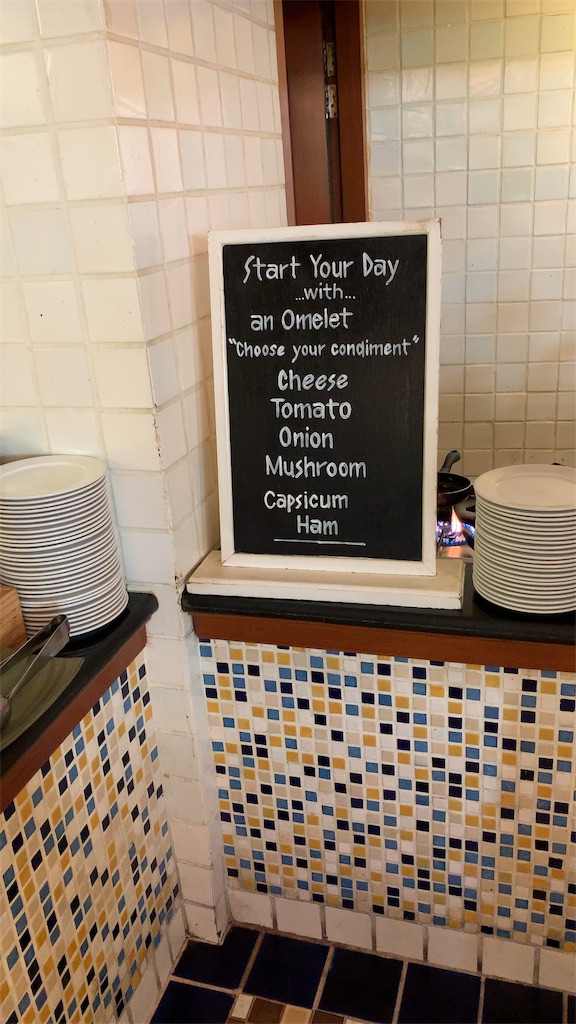 Start Your Day
...with...
an Omelet
"Choose your condiment"
Cheese
Tomato
Onion
Mushroom
Capsicum
Ham